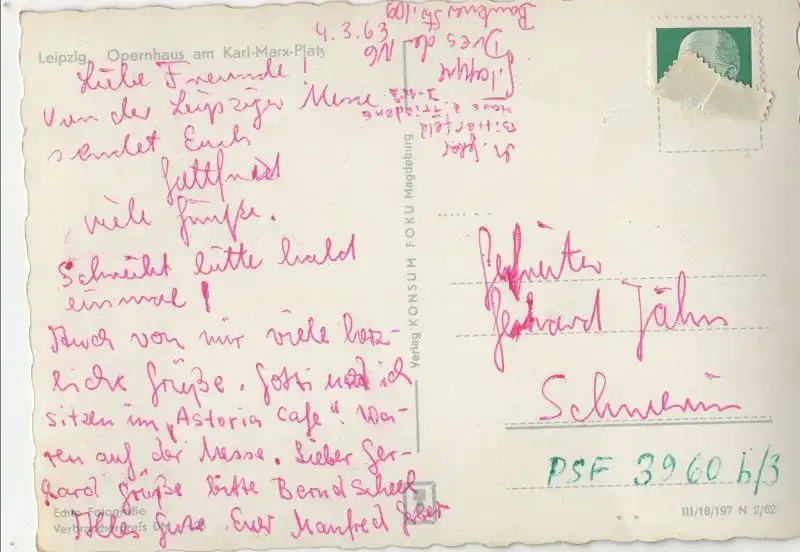 Leipzig, Opernhaus am Karl-Marx-Platz
4.3.63
Liebe Freunde!
Von der Leipziger Messe
sendet Euch
Gottfried
viele Grüße.
Schreibt bitte bald
einmal!
Auch von mir viele herz-
liche Grüße. Gotti und ich
sitzen im „Astoria Cafe". Wa-
ren auf der Messe. Lieber Ger-
hard grüße bitte Bernd Scheel
Alles Gute Euer Manfred
Echte Fotografie
Verbraucherpreis DM
Verlag KONSUM FOKU Magdeburg
Dresden N6
Bautzner Str. 109
Bitterfeld
Haus d. Friedens
Gefreiter
Gerhard Jähn
Schwerin
PSF 3960 h/3
III/18/197 N 2/62